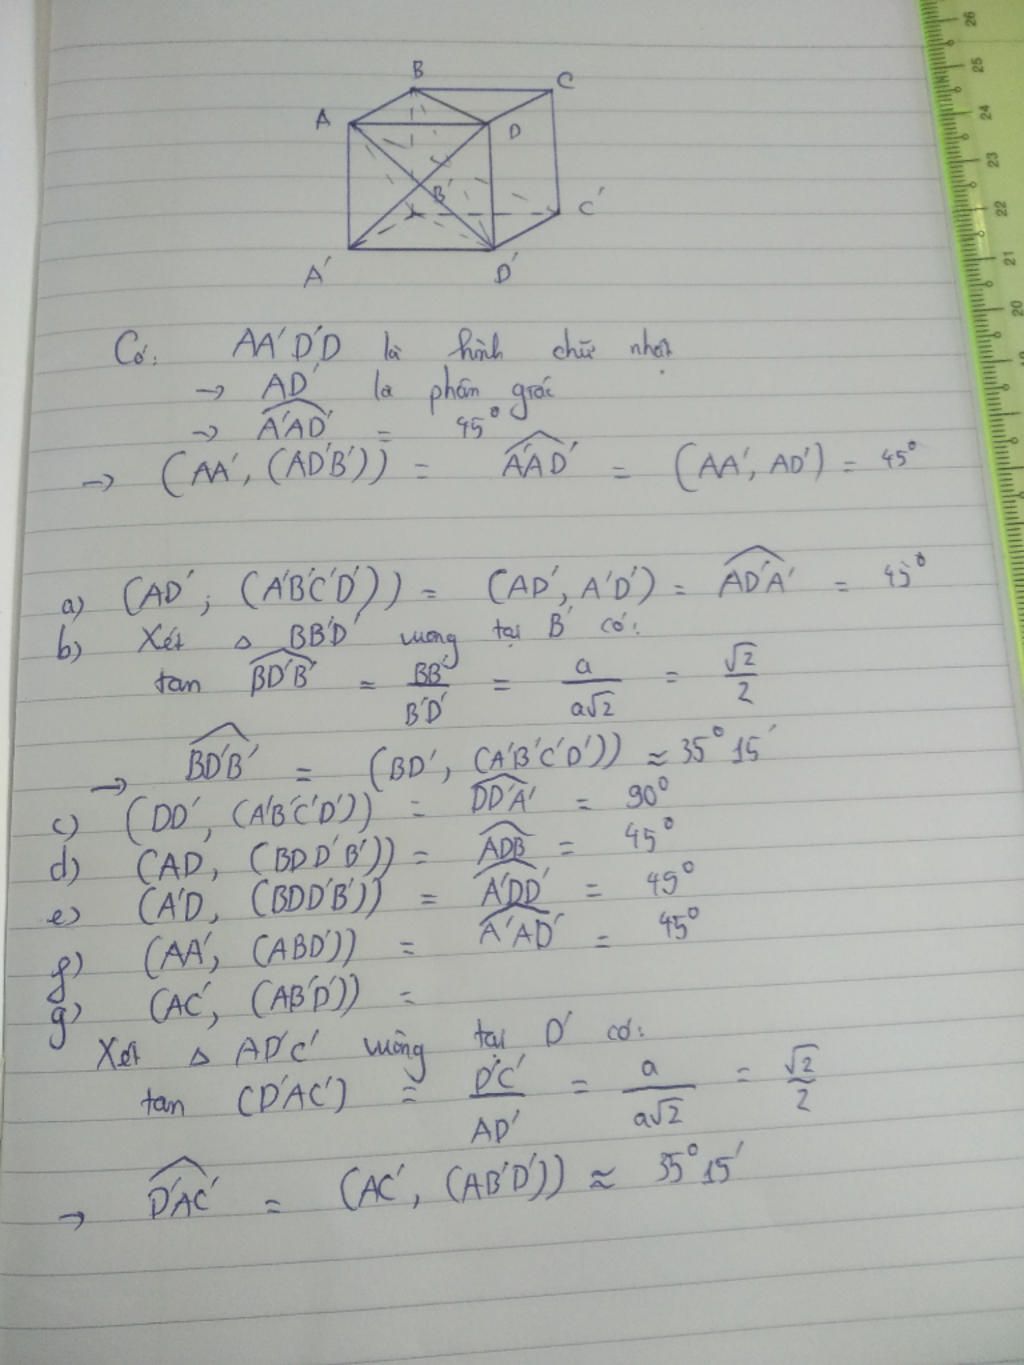 B
C
A
D
B'
C'
A'
D'
26
25
24
23
22
21
20
19
18
17
16
Có: AA'D'D là hình chữ nhật
→ AD' là phân giác
→ A'AD' = 45°
→ (AA', (AD'B')) = A'AD' = (AA', AD') = 45°
a) (AD'; (A'B'C'D')) = (AD', A'D') = AD'A' = 45°
b) Xét △ BB'D' vuông tại B' có:
tan BD'B' = BB'/B'D' = a/a√2 = √2/2
→ BD'B' = (BD', (A'B'C'D')) ≈ 35°15'
c) (DD', (A'B'C'D')) = DD'A' = 90°
d) (AD, (BDD'B')) = ADB = 45°
e) (A'D, (BDD'B')) = A'DD' = 45°
f) (AA', (ABD')) = A'AD' = 45°
g) (AC', (AB'D')) =
Xét △ AD'C' vuông tại D' có:
tan (D'AC') = D'C'/AD' = a/a√2 = √2/2
→ D'AC' = (AC', (AB'D')) ≈ 35°15'